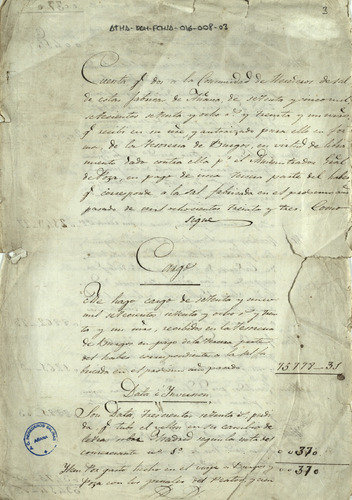 ATHA-DOH-FCMA-016-008-03
3
Cuenta q. doy a la Comunidad de Herederos de sal
de estas fabricas de Añana, de setenta y cinco mil
setecientos setenta y ocho r.s y treinta y un mrs.
q. recibi en su nre y autorizado para ello en for
ma, de la Tesoreria de Burgos, en virtud de libra
miento dado contra ella p.r el Administrador Gral
de Poza, en pago de una tercera parte del haber
q. corresponde a la sal fabricada en el proximo año
pasado de mil ochocientos treinta y tres. Como
sigue
Cargo
Me hago cargo de setenta y cinco
mil setecientos setenta y ocho r.s y trein
ta y un mrs, recibidos en la Tesoreria
de Burgos en pago de la tercera parte
del haber correspondiente a la sal fa
bricada en el proximo año pasado.
75778-31
Data ó Inversion
Son Data trescientos setenta r.s
q. tubo el
letra sobre Madrid segun la nota del
comerciante n.º 1º
370
Idem Por gasto hecho en el viage a Burgos y
Poza con los jornales del
370
AÑANA